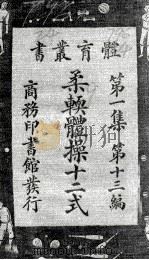 體育叢書
第一集第十三編
柔輭體操十二式
商務印書館發行